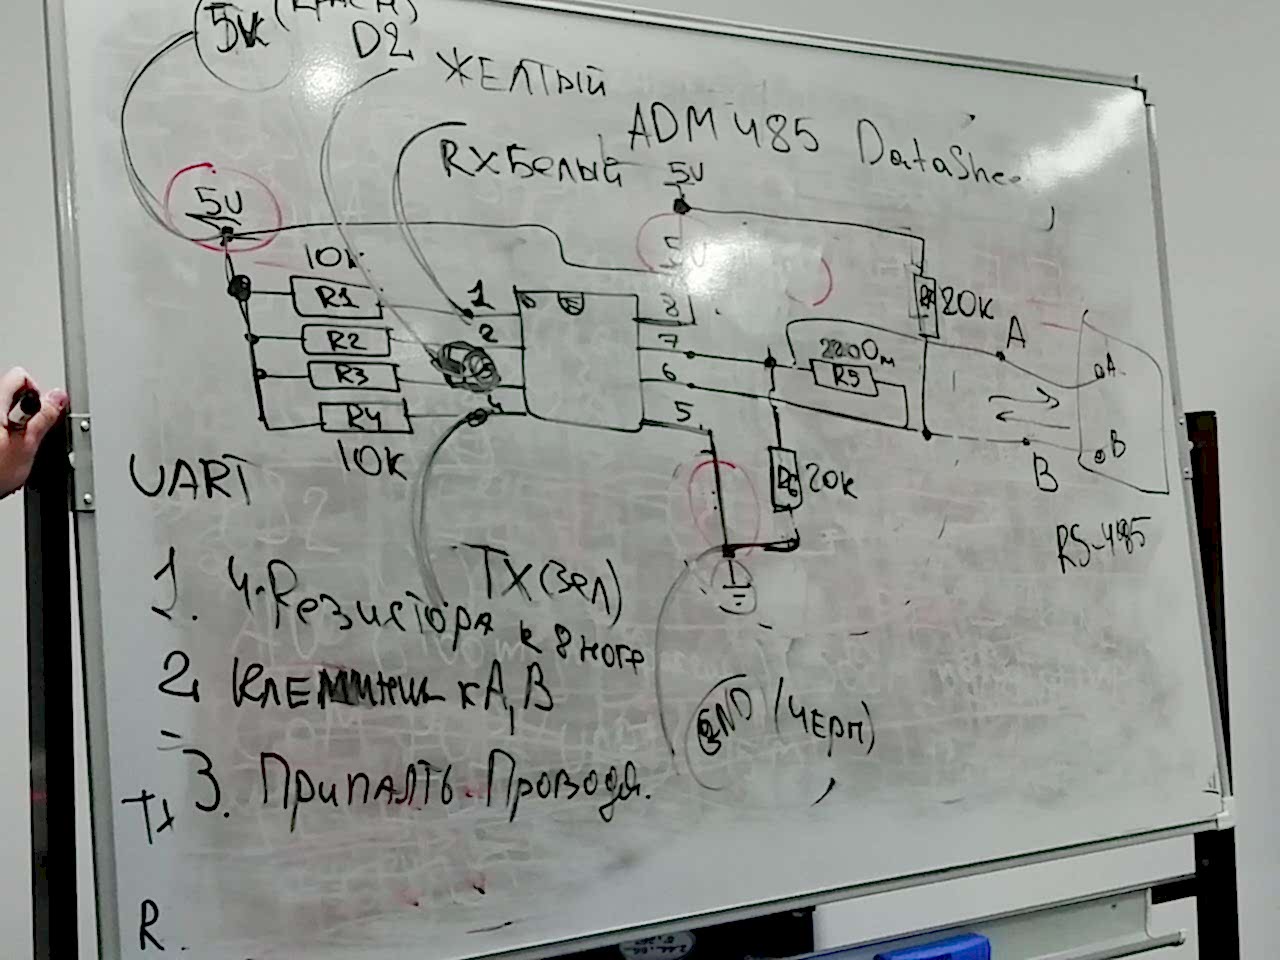 5V (КРАСН)
D2
ЖЕЛТЫЙ
ADM485 DataShee
RX БЕЛЫЙ
5V
5V
5V
10K
R1
R2
R3
R4
10K
1
2
4
8
7
6
5
20K
220Ом
R5
A
A
B
B
20K
RS-485
UART
TX (ЗЕЛ)
1. 4-Резистора к 8 ноге
2. Клеммник к A, B
3. Припаять Провода.
GND (ЧЕРН)
Tx
R